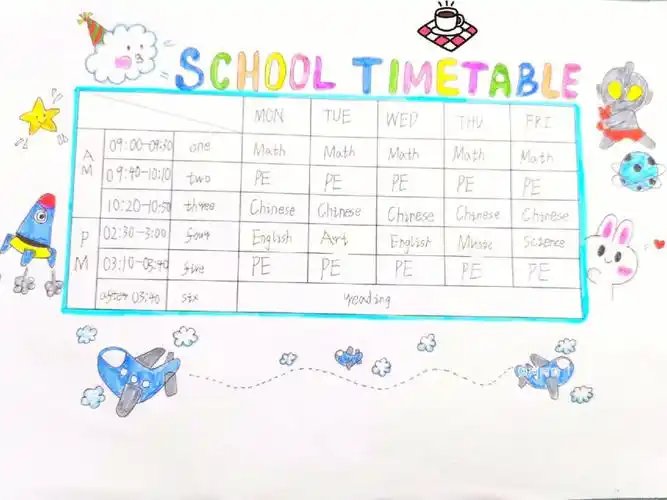 SCHOOL TIMETABLE
MON TUE WED THU FRI
AM
09:00-09:30 one Math Math Math Math Math
09:40-10:10 two PE PE PE PE PE
10:20-10:50 three Chinese Chinese Chinese Chinese Chinese
PM
02:30-3:00 four English Art English Music Science
03:10-03:40 five PE PE PE PE PE
after 03:40 six reading